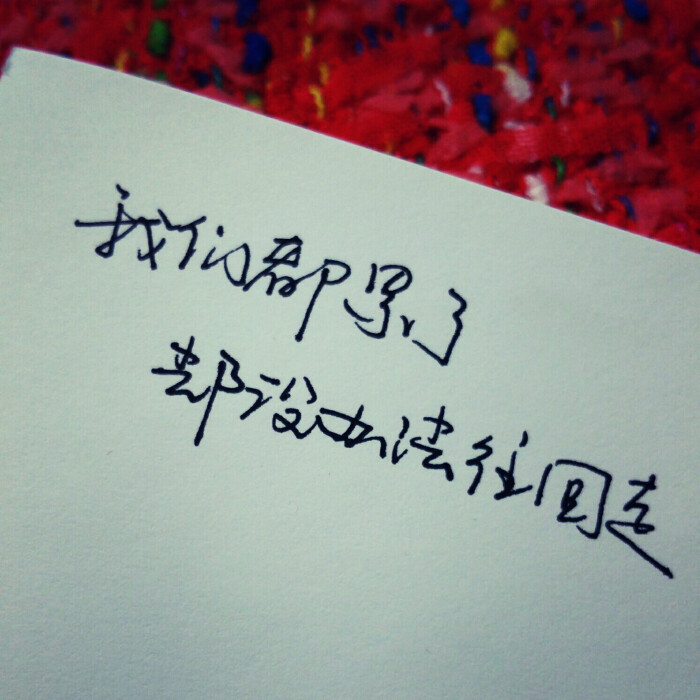 我们都累了
却没办法往回走